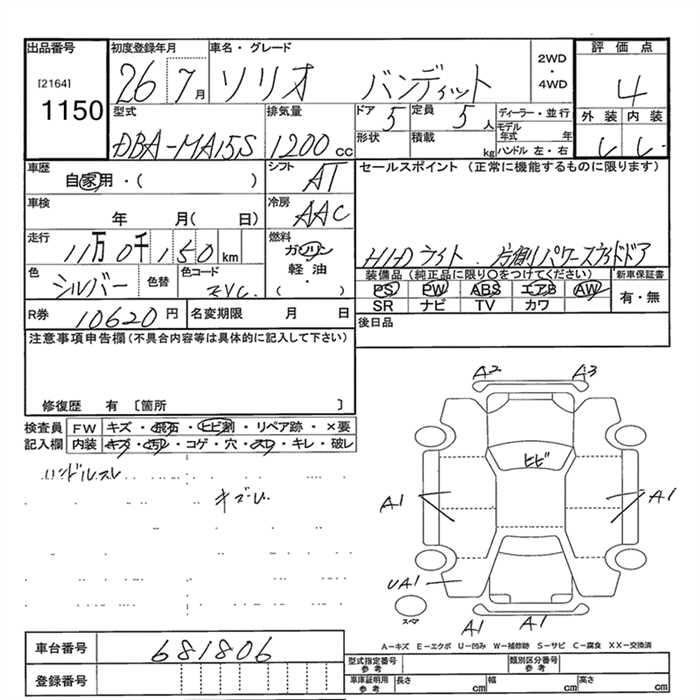 出品番号 初度登録年月 車名・グレード 2WD・4WD 評価点
[2164] 1150 26 7月 ソリオ バンディット 4
型式 排気量 ドア 定員 ディーラー・並行 外装 内装
DBA-MA15S 1200cc 5 5人 モデル年式 年
形状 積載 kg ハンドル 左・右
車歴 シフト セールスポイント (正常に機能するものに限ります)
自家用・( ) AT
車検 冷房
年 月( 日) AAC
走行 燃料
11万0千150km ガソリン HIDライト 片側パワースライドドア
色 色替 色コード 軽油 装備品(純正品に限り○をつけてください) 新車保証書
シルバー ZYC ・( ) PS PW ABS エアB AW 有・無
SR ナビ TV カワ
R券 10620円 名変期限 月 日 後日品
注意事項申告欄(不具合内容等は具体的に記入して下さい)
修復歴 有 〔箇所 〕
検査員 FW キズ・飛石・ヒビ割・リペア跡・×要
記入欄 内装 キズ・汚れ・コゲ・穴・スレ・キレ・破レ
ハンドルスレ
A2 A3
ヒビ
A1 A1
UA1
スペア
A1 A1
A－キズ E－エクボ U－凹み W－補修跡 S－サビ C－腐食 XX－交換済
車台番号 681806
登録番号
型式指定番号 参考 類別区分番号 参考
車庫証明用 参考 長さ cm 幅 cm 高さ cm